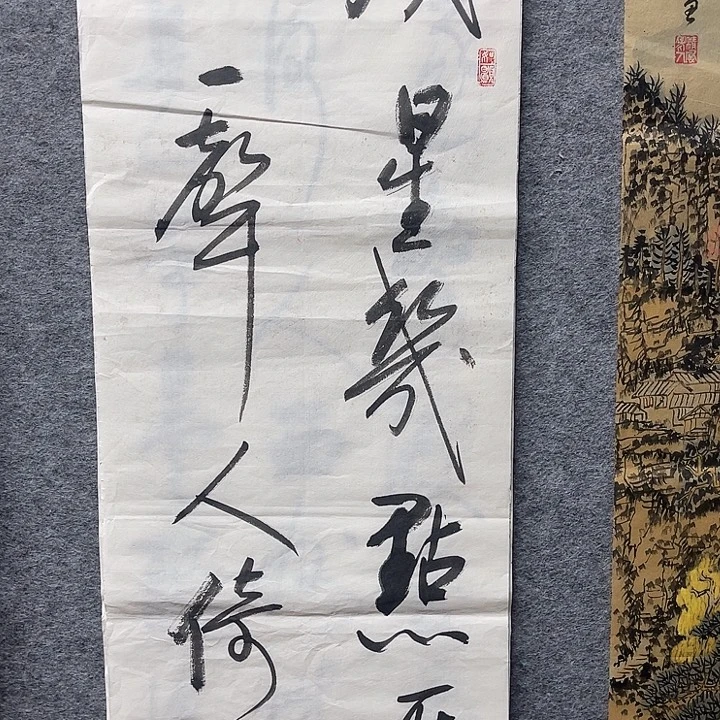 星幾點
一聲人倚